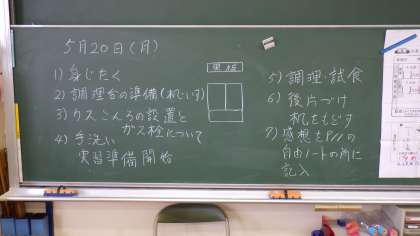 5月20日(月)
1) 身じたく
2) 調理台の準備(机・いす)
3) ガスこんろの設置と
ガス栓について
4) 手洗い
実習準備開始
黒板
5) 調理・試食
6) 後片づけ
机をもどす
7) 感想をP11の
自由ノートの所に
記入